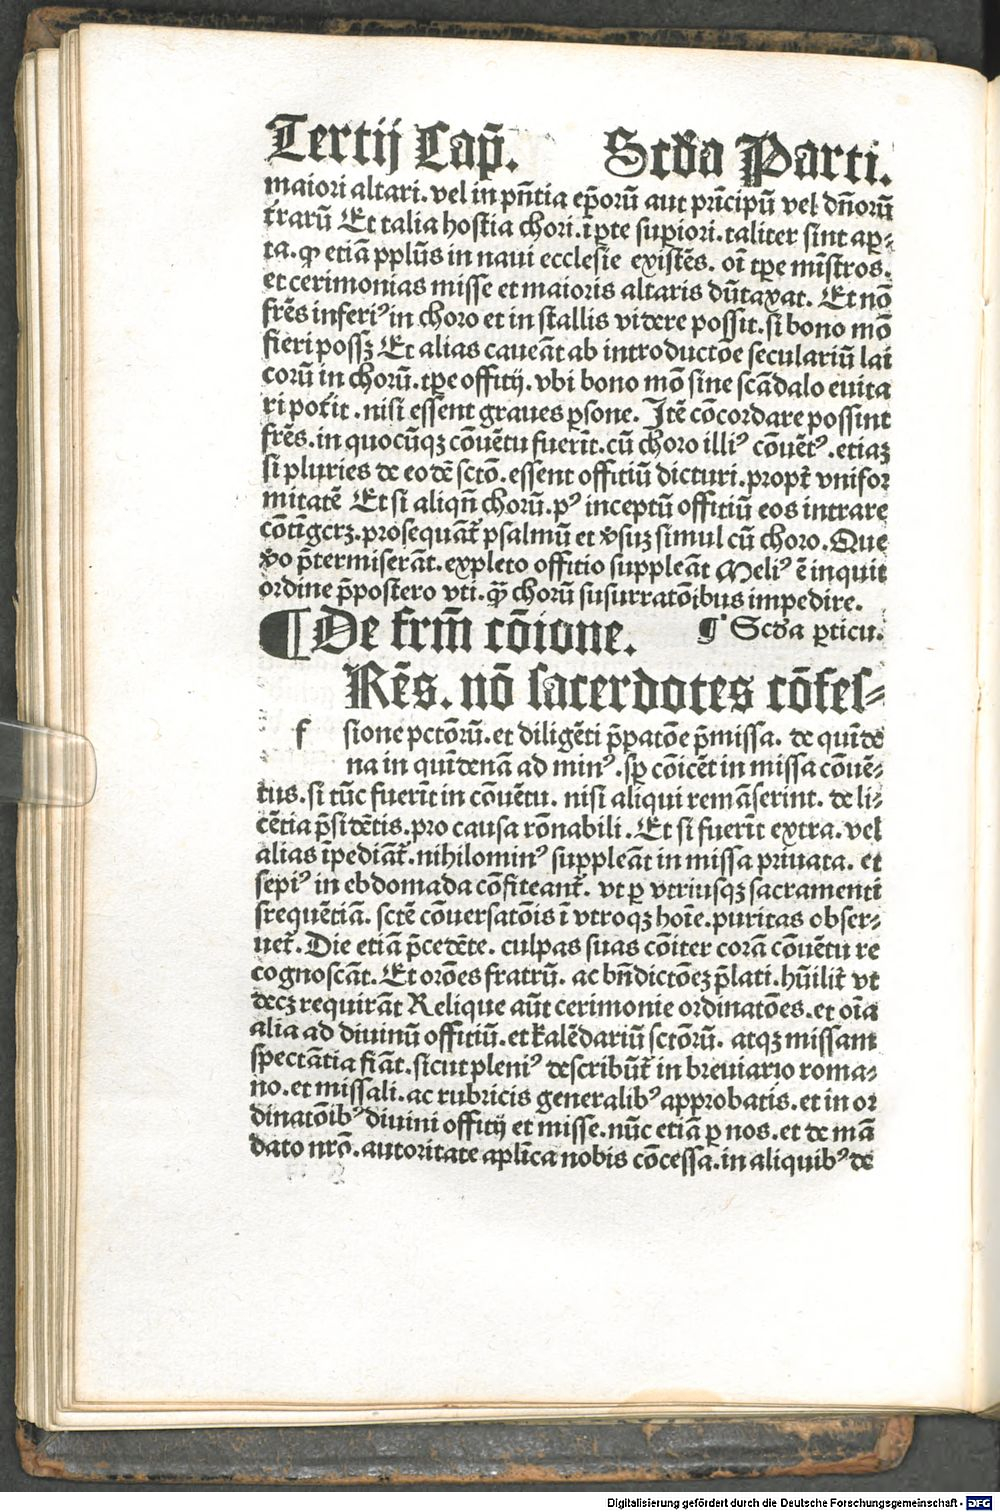 Tertij Cap̃. Scd̃a Parti.
maiori altari. vel in pñtia ep̃orũ aut prĩcipũ vel dñorũ
t̃rarũ Et talia hostia chori. ĩ ꝑte supiori. taliter sint ap-
ta. ꝙ etiã pplũs in naui ecclesie existẽs. oĩ tꝑe mĩstros.
et cerimonias misse et maioris altaris dũtaxat. Et nõ
fr̃es inferiꝰ in choro et in stallis videre possit. si bono mõ
fieri possꝫ Et alias caueãt ab introductõe seculariũ lai
corũ in chorũ. tꝑe offitij. vbi bono mõ sine scãdalo euita
ri pot̃it. nisi essent graues ꝑsone. Itẽ cõcordare possint
fr̃es. in quocũqꝫ cõuẽtu fuerĩt. cũ choro illiꝰ cõuẽtꝰ. etiaꝫ
si pluries de eodẽ sctõ. essent offitiũ dicturi. propt̃ vnifor
mitatẽ Et si aliqñ chorũ. pꝰ inceptũ offitiũ eos intrare
cõtĩgerꝫ. prosequãt̃ psalmũ et v̈suꝫ simul cũ choro. Que
v̈o p̃termiserãt. expleto offitio suppleãt Meliꝰ ẽ inquit
ordine p̃postero vti. q̃ꝫ chorũ susurratõibus impedire.
¶ De frm̃ cõione. ¶ Scd̃a ꝑticu.
Rẽs. nõ sacerdotes cõfes-
f sione pctõrũ. et diligẽti p̃patõe p̃missa. de quĩde
na in quĩdenã ad minꝰ. sp̃ cõicẽt in missa cõuẽ-
tus. si tũc fuerĩt in cõuẽtu. nisi aliqui remãserint. de li-
cẽtia p̃sidẽtis. pro causa rõnabili. Et si fuerĩt extra. vel
alias ĩpediãt̃. nihilominꝰ suppleãt in missa priuata. et
sepiꝰ in ebdomada cõfiteant̃. vt ꝑ vtriusqꝫ sacramenti
frequẽtiã. sctẽ cõuersatõis ĩ vtroqꝫ hoĩe. puritas obser-
uet̃. Die etiã p̃cedẽte. culpas suas cõiter corã cõuẽtu re
cognoscãt. Et orõnes fratrũ. ac bñdictõeꝫ p̃lati. hũilit̃ vt
decꝫ requirãt Relique aũt cerimonie ordinatões. et oĩa
alia ad diuinũ offitiũ. et kalẽdariũ sctõrũ. atqꝫ missam
spectãtia fiãt. sicut pleniꝰ describũt̃ in breuiario roma-
no. et missali. ac rubricis generalibꝰ approbatis. et in or
dinatõibꝰ diuini offitij et misse. nũc etiã ꝑ nos. et de mã
dato nrõ. autoritate aplĩca nobis cõcessa. in aliquibꝰ de
Digitalisierung gefördert durch die Deutsche Forschungsgemeinschaft - DFG